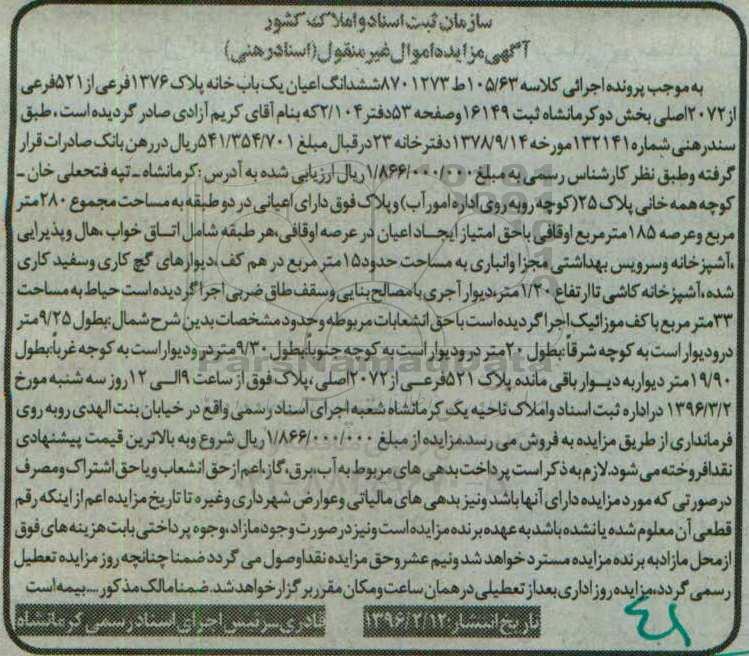 سازمان ثبت اسناد و املاک کشور
آگهی مزایده اموال غیر منقول (اسناد رهنی)
به موجب پرونده اجرائی کلاسه ۱۰۵/۶۳ط ۸۷۰۱۲۷۳ ششدانگ اعیان یک باب خانه پلاک ۱۳۷۶ فرعی از ۵۲۱ فرعی
از ۲۰۷۲ اصلی بخش دو کرمانشاه ثبت ۱۶۱۴۹ وصفحه ۵۳ دفتر ۲/۱۰۴ که بنام آقای کریم آزادی صادر گردیده است، طبق
سند رهنی شماره ۱۳۲۱۴۱ مورخه ۱۳۷۸/۹/۱۴ دفتر خانه ۲۳ در قبال مبلغ ۵۴۱/۳۵۴/۷۰۱ ریال در رهن بانک صادرات قرار
گرفته وطبق نظر کارشناس رسمی به مبلغ ۱/۸۶۶/۰۰۰/۰۰۰ ریال ارزیابی شده به آدرس : کرمانشاه ـ تپه فتحعلی خان ـ
کوچه همه خانی پلاک ۲۵ (کوچه روبه روی اداره امور آب) وپلاک فوق دارای اعیانی در دو طبقه به مساحت مجموع ۲۸۰ متر
مربع وعرصه ۱۸۵ متر مربع اوقافی باحق امتیاز ایجاد اعیان در عرصه اوقافی ،هر طبقه شامل اتاق خواب ،هال وپذیرایی
،آشپزخانه وسرویس بهداشتی مجزا وانباری به مساحت حدود ۱۵ متر مربع در هم کف ،دیوارهای گچ کاری وسفید کاری
شده ،آشپزخانه کاشی تا ارتفاع ۱/۲۰ متر،دیوار آجری با مصالح بنایی وسقف طاق ضربی اجرا گردیده است حیاط به مساحت
۳۳ متر مربع با کف موزائیک اجرا گردیده است با حق انشعابات مربوطه وحدود مشخصات بدین شرح شمال :بطول ۹/۲۵ متر
درودیوار است به کوچه شرقاً :بطول ۲۰ متر درودیوار است به کوچه جنوباً:بطول ۹/۳۰ متر درودیوار است به کوچه غرباً:بطول
۱۹/۹۰ متر دیوار به دیوار باقی مانده پلاک ۵۲۱ فرعی از ۲۰۷۲ اصلی ،پلاک فوق از ساعت ۹ الی ۱۲ روز سه شنبه مورخ
۱۳۹۶/۳/۲ در اداره ثبت اسناد و املاک ناحیه یک کرمانشاه شعبه اجرای اسناد رسمی واقع در خیابان بنت الهدی روبه روی
فرمانداری از طریق مزایده به فروش می رسد.مزایده از مبلغ ۱/۸۶۶/۰۰۰/۰۰۰ ریال شروع وبه بالاترین قیمت پیشنهادی
نقدا فروخته می شود. لازم به ذکر است پرداخت بدهی های مربوط به آب ،برق ،گاز،اعم از حق انشعاب ویا حق اشتراک ومصرف
در صورتی که مورد مزایده دارای آنها باشد ونیز بدهی های مالیاتی وعوارض شهرداری وغیره تا تاریخ مزایده اعم از اینکه رقم
قطعی آن معلوم شده یا نشده باشد به عهده برنده مزایده است ونیز در صورت وجود مازاد ،وجوه پرداختی بابت هزینه های فوق
از محل مازاد به برنده مزایده مسترد خواهد شد ونیم عشر و حق مزایده نقدا وصول می گردد ضمنا چنانچه روز مزایده تعطیل
رسمی گردد،مزایده روز اداری بعد از تعطیلی در همان ساعت ومکان مقرر برگزار خواهد شد. ضمنا مالک مذکور ....بیمه است
تاریخ انتشار: ۱۳۹۶/۲/۱۲
قادری ـ رئیس اجرای اسناد رسمی کرمانشاه
ParsNamadData